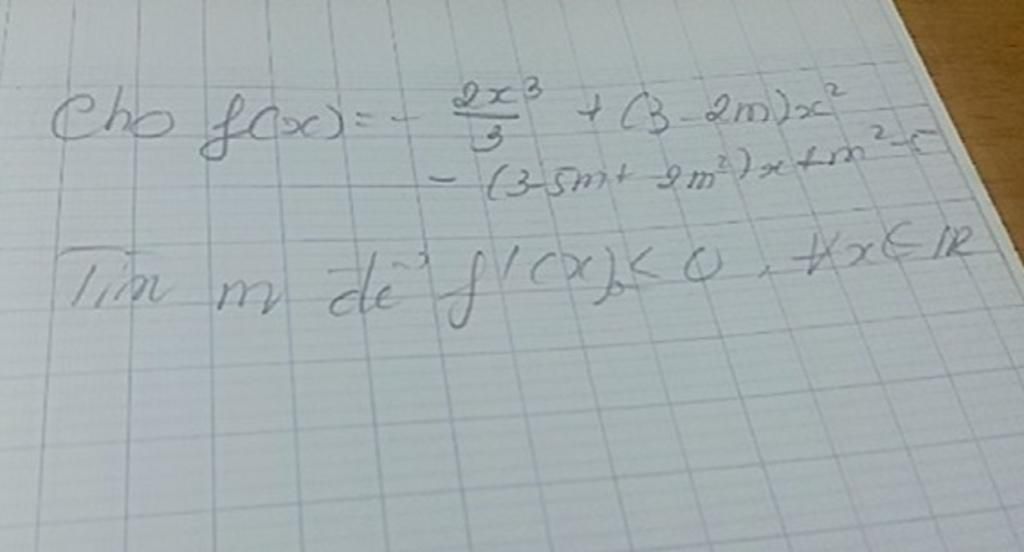 Cho f(x) = - 2x³/3 + (3 - 2m)x²
- (3-5m+ 2m²)x + m² - 5
Tìm m để f'(x) < 0, ∀x ∈ ℝ